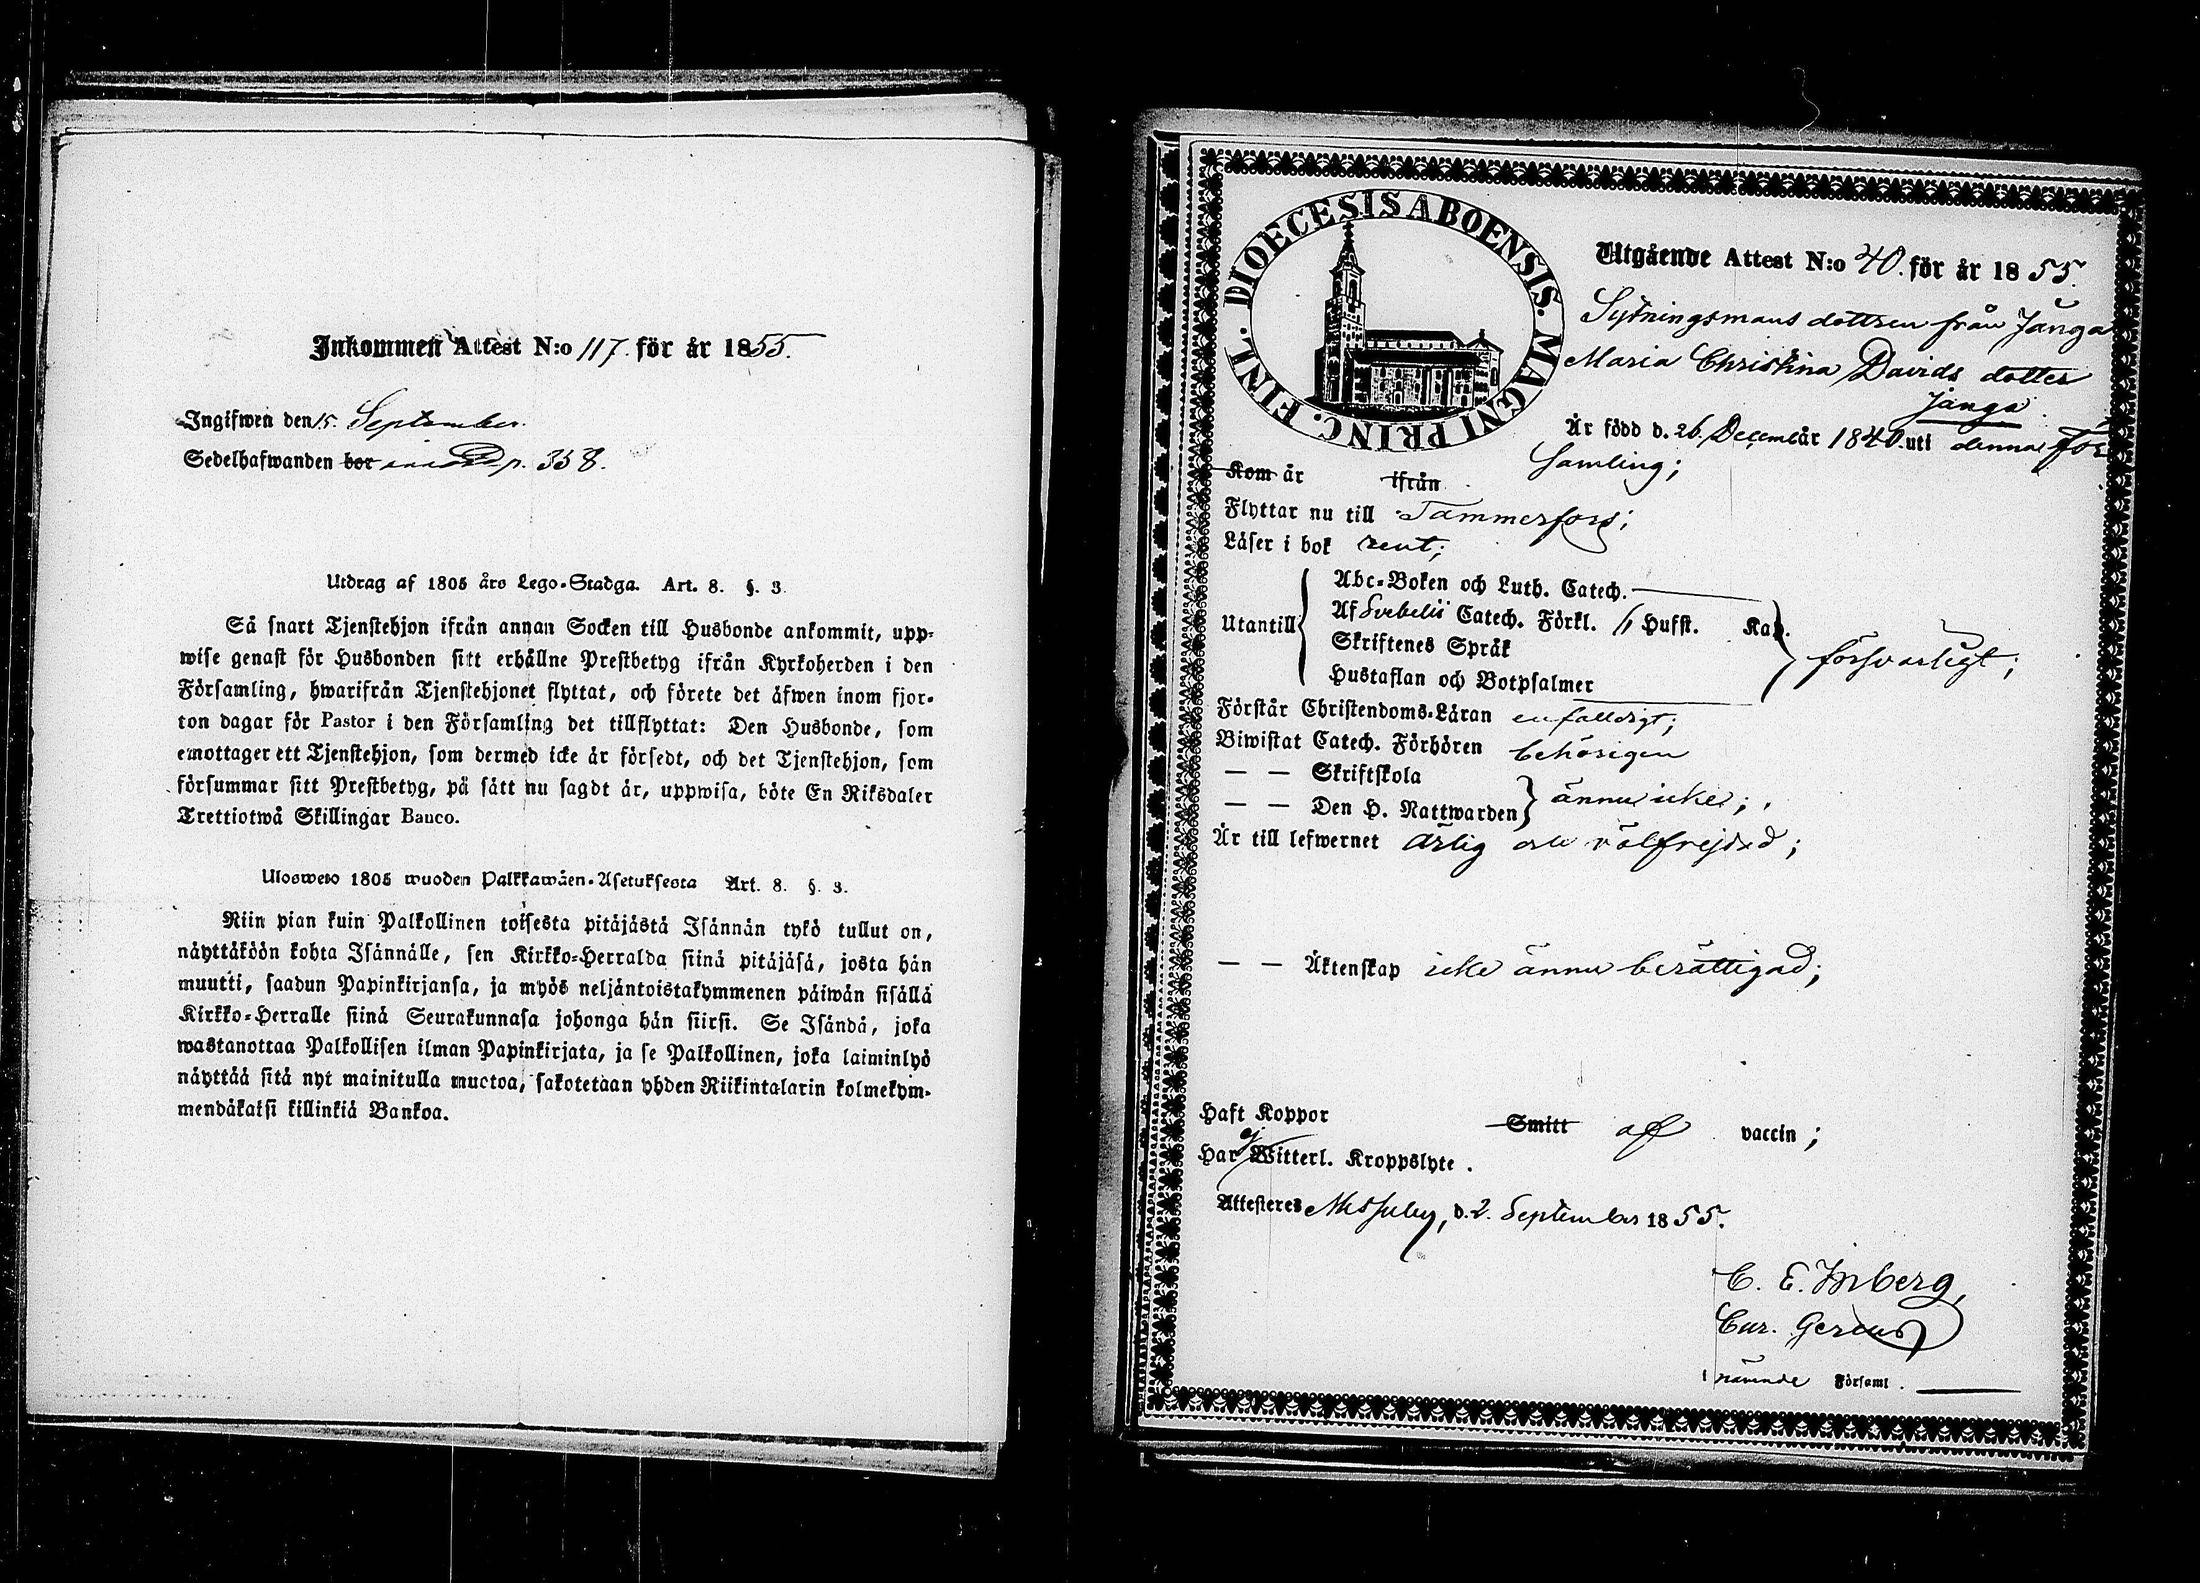 Inkommen Attest N:o 117. för år 1855.
Ingifwen den 15. September.
Sedelhafwanden bor p. 358.
Utdrag af 1805 års Lego-Stadga. Art. 8. §. 3.
Så snart Tjenstehjon ifrån annan Socken till Husbonde ankommit, upp-
wise genast för Husbonden sitt erhållne Prestbetyg ifrån Kyrkoherden i den
Församling, hwarifrån Tjenstehjonet flyttat, och förete det äfwen inom fjor-
ton dagar för Pastor i den Församling det tillflyttat: Den Husbonde, som
emottager ett Tjenstehjon, som dermed icke är försedt, och det Tjenstehjon, som
försummar sitt Prestbetyg, på sätt nu sagdt är, uppwisa, böte En Riksdaler
Trettiotwå Skillingar Banco.
Ulosweto 1805 wuoden Palkkawäen-Asetuksesta Art. 8. §. 3.
Niin pian kuin Palkollinen toisesta pitäjästä Isännän tykö tullut on,
näyttäköön kohta Isännälle, sen Kirkko-Herralda siinä pitäjäsä, josta hän
muutti, saadun Papinkirjansa, ja myös neljäntoistakymmenen päiwän sisällä
Kirkko-Herralle siinä Seurakunnasa johonga hän siirsi. Se Isändä, joka
wastanottaa Palkollisen ilman Papinkirjata, ja se Palkollinen, joka laiminlyö
näyttää sitä nyt mainitulla muotoa, sakotetaan yhden Riikintalarin kolmekym-
mendäkaksi killinkiä Bankoa.
DIOECESIS ABOENSIS. MAGNI PRINC. FINL.
Utgående Attest N:o 40. för år 1855.
Sytningsmans dottren från Janga
Maria Christina Davids dotter
Janga
Är född d. 26. Decemb är 1840. uti denna För
samling;
Kom år ifrån
Flyttar nu till Tammerfors;
Läser i bok rent;
Abc-Boken och Luth. Catech.
Utantill Af Svebelii Catech. Förkl. Hufst. Kap.
Skriftenes Språk
Hustaflan och Botpsalmer
försvarligt;
Förstår Christendoms-Läran enfaldigt;
Biwistat Catech. Förhören behörigen
— — Skriftskola
— — Den H. Nattwarden ännu icke;
Är till lefwernet ärlig och välfrejdad;
— — Äktenskap icke ännu berättigad;
Haft Koppor Smitt af vaccin;
Har ej Witterl. Kroppslyte.
Attesteres Messuby, d. 2. September 1855.
C. E. Imberg,
Cur. Gerens
i nämnde Församl.